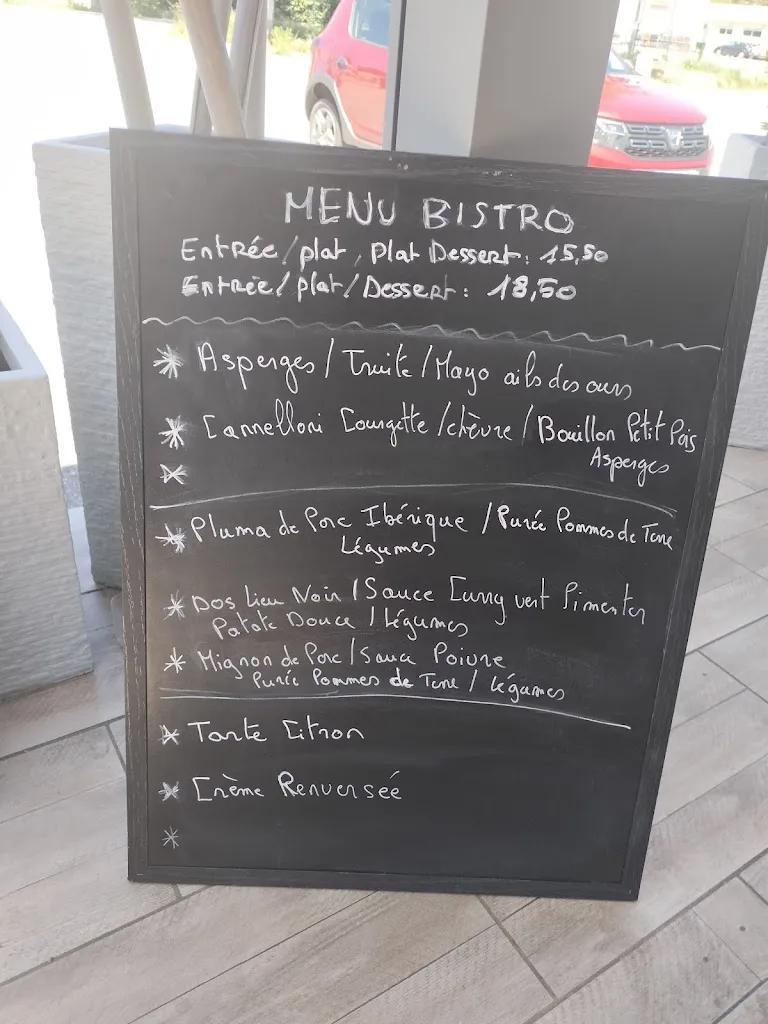 MENU BISTRO
Entrée/plat, Plat Dessert: 15,50
Entrée/plat/Dessert: 18,50
Asperges/Truite/Mayo ails des ours
Cannelloni Courgette/chèvre/Bouillon Petit Pois
Asperges
Pluma de Porc Ibérique/Purée Pommes de Terre
Légumes
Dos Lieu Noir/Sauce Curry vert Pimenter
Patate Douce/Légumes
Mignon de Porc/Sauce Poivre
Purée Pommes de Terre/Légumes
Tarte Citron
Crème Renversée